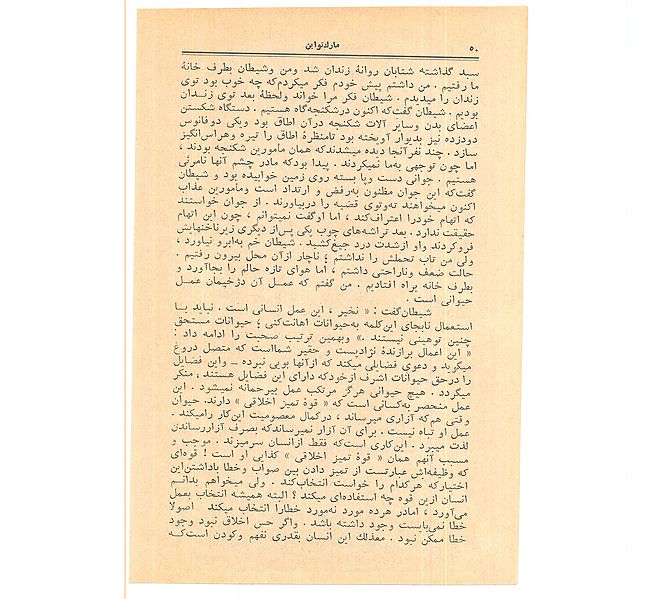 ۵۰
مارك تواین
سبد گذاشته شتابان روانهٔ زندان شد ومن وشیطان بطرف خانهٔ
ما رفتیم . من داشتم پیش خودم فکر میکردم‌که چه خوب بود توی
زندان را میدیدم . شیطان فکر مرا خواند ولحظهٔ بعد توی زندان
بودیم . شیطان گفت‌که اکنون درشکنجه‌گاه هستیم . دستگاه شکستن
اعضای بدن وسایر آلات شکنجه درآن اطاق بود ویکی دوفانوس
دودزده نیز بدیوار آویخته بود تامنظرهٔ اطاق را تیره وهراس‌انگیز
سازد . چند نفرآنجا دیده میشدندکه همان مامورین شکنجه بودند ،
اما چون توجهی به‌ما نمیکردند . پیدا بودکه مادر چشم آنها نامرئی
هستیم . جوانی دست وپا بسته روی زمین خوابیده بود و شیطان
گفت‌که این جوان مظنون به‌رفض و ارتداد است ومأمورین عذاب
اکنون میخواهند ته‌وتوی قضیه را دربیاورند . از جوان خواستند
که اتهام خودرا اعتراف‌کند ، اما اوگفت نمیتوانم ، چون این اتهام
حقیقت ندارد . بعد تراشه‌های چوب یکی پس‌از دیگری زیرناخنهایش
فروکردند واو ازشدت درد جیغ‌کشید . شیطان خم به‌ابرو نیاورد ،
ولی من تاب تحملش را نداشتم ؛ ناچار ازآن محل بیرون رفتیم .
حالت ضعف وناراحتی داشتم ، اما هوای تازه حالم را بجاآورد و
بطرف خانه براه افتادیم . من گفتم که عمل آن دژخیمان عمل
حیوانی است .
شیطان‌گفت : « نخیر ، این عمل انسانی است . نباید با
استعمال نابجای این‌کلمه به‌حیوانات اهانت‌کنی ؛ حیوانات مستحق
چنین توهینی نیستند .» وبهمین ترتیب صحبت را ادامه داد :
« این اعمال برازندهٔ نژادپست و حقیر شمااست که متصل دروغ
میگوید و دعوی فضایلی میکند که ازآنها بویی نبرده ـ واین فضایل
را درحق حیوانات اشرف ازخودکه دارای این فضایل هستند ، منکر
میگردد . هیچ حیوانی هرگز مرتکب عمل بیرحمانه نمیشود . این
عمل منحصر به‌کسانی است که « قوهٔ تمیز اخلاقی » دارند. حیوان
وقتی هم‌که آزاری میرساند ، درکمال معصومیت این‌کار رامیکند .
عمل او تباه نیست . برای آن آزار نمیرساندکه بصرف آزاررساندن
لذت میبرد . این‌کاری است‌که فقط ازانسان سرمیزند . موجب و
مسبب آنهم همان « قوهٔ تمیز اخلاقی » کذایی او است ! قوه‌ای
که وظیفه‌اش عبارتست از تمیز دادن بین صواب وخطا باداشتن‌این
اختیارکه هرکدام را خواست انتخاب‌کند . ولی میخواهم بدانم
انسان ازین قوه چه استفاده‌ای میکند ؟ البته همیشه انتخاب بعمل
می‌آورد ، امادر هرده مورد نه‌مورد خطارا انتخاب میکند اصولا
خطا نمی‌بایست وجود داشته باشد . واگر حس اخلاق نبود وجود
خطا ممکن نبود . معذلك این انسان بقدری نفهم وکودن است‌که